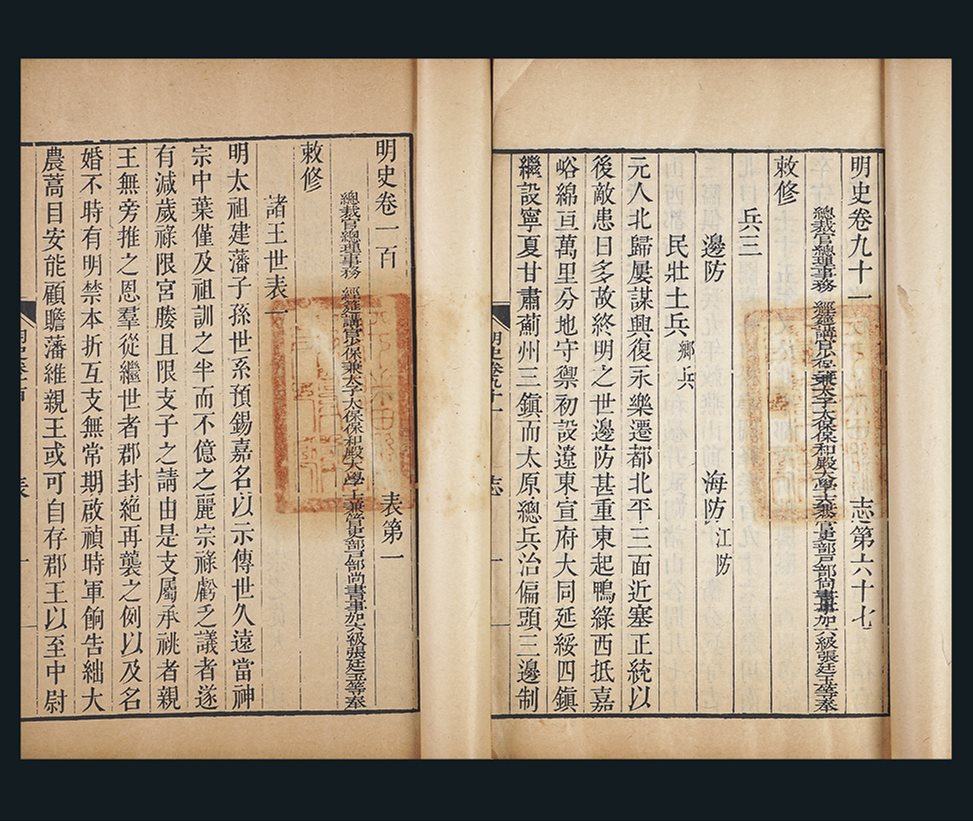 明史卷九十一 志第六十七
總裁官總理事務 經筵講官少保兼太子太保保和殿大學士兼管吏部戶部尚書事加六級張廷玉等奉
敕修
兵三
邊防 海防 江防
民壯土兵 鄉兵
元人北歸屢謀興復永樂遷都北平三面近塞正統以
後敵患日多故終明之世邊防甚重東起鴨綠西抵嘉
峪綿亘萬里分地守禦初設遼東宣府大同延綏四鎮
繼設寧夏甘肅薊州三鎮而太原總兵治偏頭三邊制
明史卷九十一
志
一
明史卷一百 表第一
總裁官總理事務 經筵講官少保兼太子太保保和殿大學士兼管吏部戶部尚書事加六級張廷玉等奉
敕修
諸王世表一
明太祖建藩子孫世系預錫嘉名以示傳世久遠當神
宗中葉僅及祖訓之半而不億之麗宗祿虧乏議者遂
有減歲祿限宮媵且限支子之請由是支屬承祧者親
王無旁推之恩羣從繼世者郡封絕再襲之例以及名
婚不時有明禁本折互支無常期啟禎時軍餉告絀大
農蒿目安能顧贍藩維親王或可自存郡王以至中尉
明史卷一百
表
一